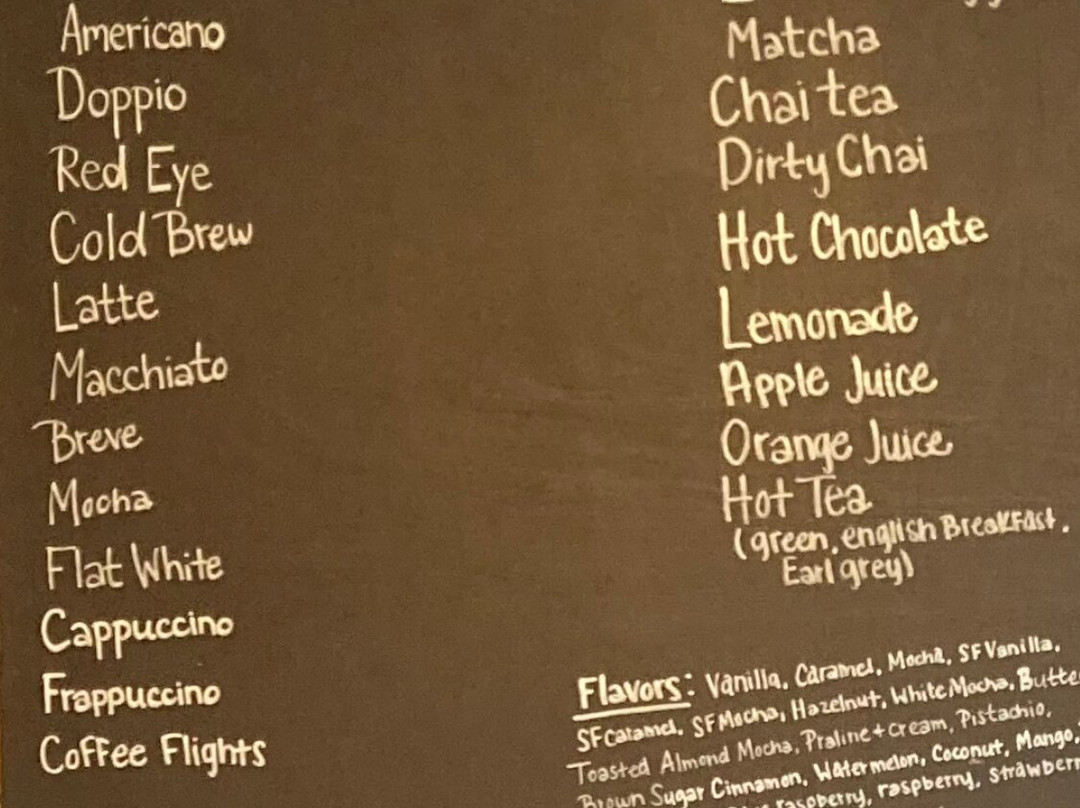 Americano
Doppio
Red Eye
Cold Brew
Latte
Macchiato
Breve
Mocha
Flat White
Cappuccino
Frappuccino
Coffee Flights
Matcha
Chai tea
Dirty Chai
Hot Chocolate
Lemonade
Apple Juice
Orange Juice
Hot Tea
(green, english Breakfast,
Earl grey)
Flavors: Vanilla, Caramel, Mocha, SF Vanilla,
SF Caramel, SF Mocha, Hazelnut, White Mocha,
Toasted Almond Mocha, Praline + Cream, Pistachio,
Brown Sugar Cinnamon, Watermelon, Coconut, Mango,
raspberry, raspberry,